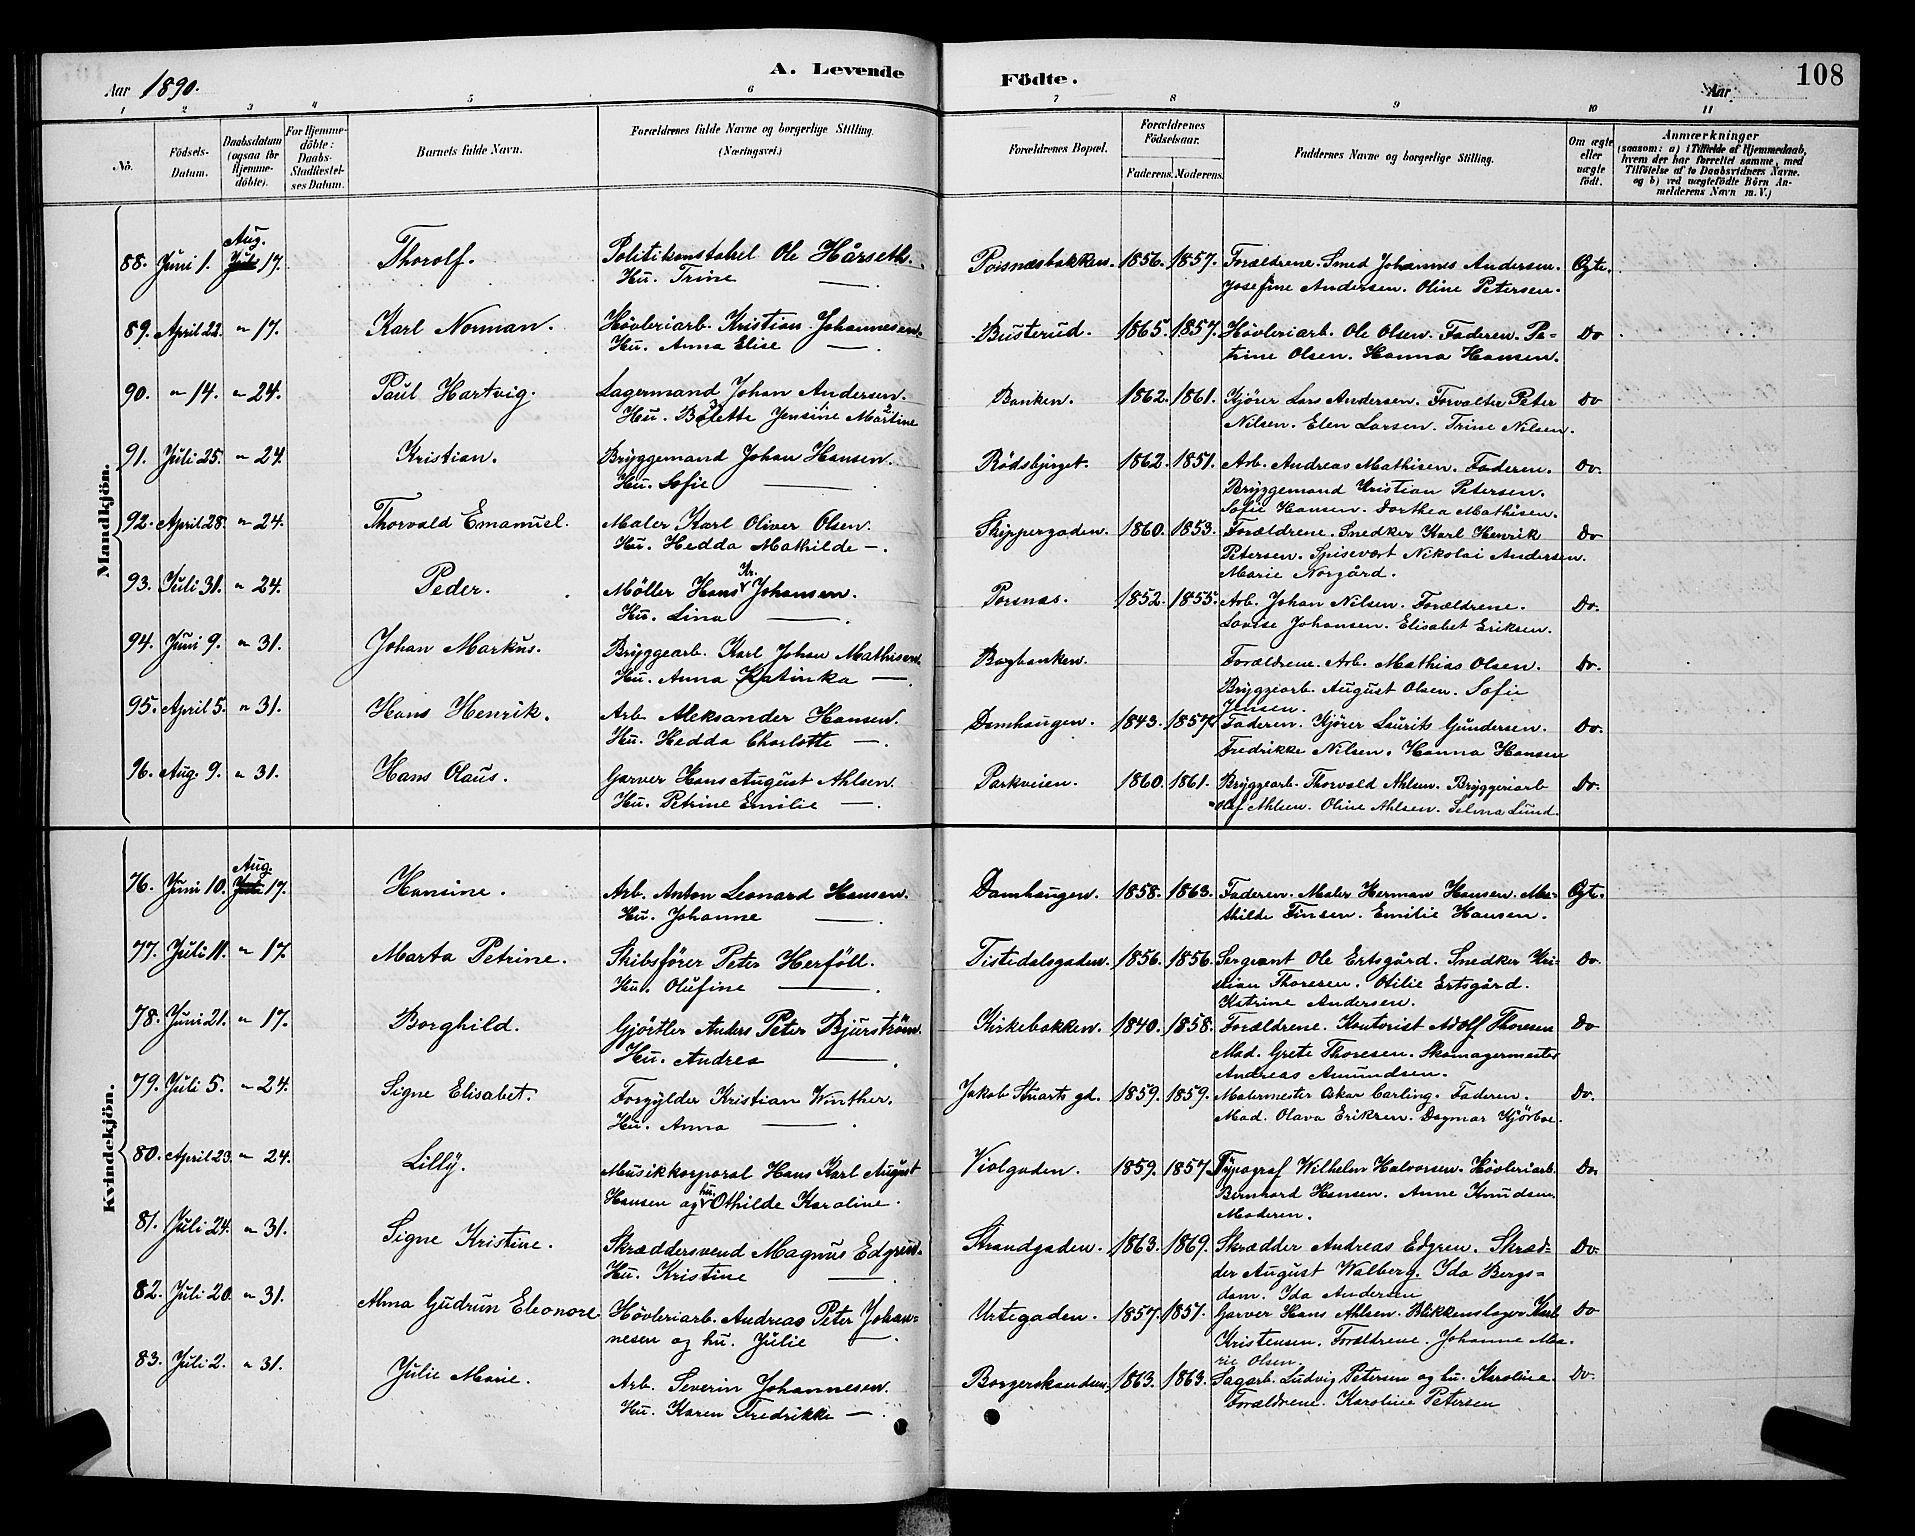 Aar 1890.
A. Levende
Födte.
Aar
108
1 2 3 4 5 6 7 8 9 10 11
Nö.
Födsels-Datum.
Daabsdatum (ogsaa for Hjemme-döbte).
For Hjemme-döbte: Daabs-Stadfæstel-ses Datum.
Barnets fulde Navn.
Forældrenes fulde Navne og borgerlige Stilling. (Næringsvei.)
Forældrenes Bopæl.
Forældrenes Födselsaar.
Faderens. Moderens.
Faddernes Navne og borgerlige Stilling.
Om ægte eller uægte födt.
Anmærkninger
(saasom: a) i Tilfælde af Hjemmedaab, hvem der har forrettet samme, med Tilföielse af to Daabsvidners Navne. og b) ved uægtefödte Börn An-melderens Navn m. V.)
Mandkjön.
88. Juni 1. Aug. Juli 17. Thorolf. Politikonstabel Ole Hårseth. Porsnæsbakken. 1856. 1857. Forældrene. Smed Johannes Andersen. Ægte.
Hu. Trine — Josefine Andersen. Oline Petersen.
89. April 22. " 17. Karl Norman. Høvleriarb. Kristian Johannesen. Busterud. 1865. 1857. Høvleriarb. Ole Olsen. Faderen. Pe-
Hu. Anna Elise — trine Olsen. Hanna Hansen. Do
90. " 14. " 24. Paul Hartvig. Lagermand Johan Andersen. Banken. 1862. 1861. Kjører Lars Andersen. Forvalter Peter Do
Hu. Bolette Jensine Martine Nilsen. Elen Larsen. Trine Nilsen.
91. Juli 25. " 24. Kristian. Bryggemand Johan Hansen. Rødsbjerget. 1862. 1851. Arb. Andreas Mathisen. Faderen. Do.
Hu. Sofie — Bryggemand Kristian Petersen.
Sofie Hansen. Dorthea Mathisen.
92. April 28. " 24. Thorvald Emanuel. Maler Karl Oliver Olsen. Skippergaden. 1860. 1853. Forældrene. Snedker Karl Henrik Do
Hu. Hedda Mathilde —. Petersen. Spisevært Nikolai Andersen.
Marie Norgård.
93. Juli 31. " 24. Peder. Möller Hans Kr. Johansen. Porsnæs. 1852. 1855. Arb. Johan Nilsen. Forældrene. Do.
Hu. Lina — Lovise Johansen. Elisabet Eriksen.
94. Juni 9. " 31. Johan Markus. Bryggearb. Karl Johan Mathisen. Bagbanken. Forældrene. Arb. Mathias Olsen. Do.
Hu. Anna Katinka —. Bryggearb. August Olsen. Sofie
Jensen.
95. April 5. " 31. Hans Henrik. Arb. Aleksander Hansen. Damhaugen. 1843. 1857. Faderen. Kjører Laurits Gundersen. Do.
Hu. Hedda Charlotte —. Fredrikke Nilsen. Hanna Hansen
96. Aug. 9. " 31. Hans Olaus. Garver Hans August Ahlsen. Parkveien. 1860. 1861. Bryggearb. Thorvald Ahlsen. Bryggeriarb Do.
Hu. Petrine Emilie —. Olaf Ahlsen. Oline Ahlsen. Selma Lund.
Kvindekjön.
76. Juni 10. Aug. Juli 17. Hansine. Arb. Anton Leonard Hansen. Damhaugen. 1858. 1863. Faderen. Maler Herman Hansen. Ma- Ægt.
Hu. Johanne — thilde Finsen. Emilie Hansen.
77. Juli 11. " 17. Marta Petrine. Skibsfører Peter Herföll. Tistedalsgaden. 1856. 1856. Sergeant Ole Ertsgård. Snedker Kri- Do
Hu. Olufine —. stian Thoresen. Otilie Ertsgård.
Katrine Andersen.
78. Juni 21. " 17. Borghild. Gjørtler Anders Peter Bjurström. Kirkebakken. 1840. 1858. Forældrene. Kontorist Adolf Thoresen Do
Hu. Andrea —. Mad. Grete Thoresen. Skomagermester
Andreas Amundsen.
79. Juli 5. " 24. Signe Elisabet. Forgylder Kristian Winther. Jakob Stuarts gd. 1859. 1859. Malermester Oskar Carling. Faderen. Do.
Hu. Anna —. Mad. Olava Eriksen. Dagmar Kjørboe.
80. April 23. " 24. Lilly. Musikkorporal Hans Karl August Violgaden. 1859. 1857. Typograf Wilhelm Halvorsen. Høvleriarb. Do.
Hansen og hu. Othilde Karoline. Bernhard Hansen. Anne Knudsen.
Moderen.
81. Juli 24. " 31. Signe Kristine. Skræddersvend Magnus Edgren. Strandgaden. 1863. 1869. Skrædder Andreas Edgren. Skræd- Do.
Hu. Kristine — der August Walberg. Ida Bergs-
dam. Ida Andersen
82. Juli 20. " 31. Alma Gudrun Eleonore Høvleriarb. Andreas Peter Johan- Urtegaden. 1857. 1851. Garver Hans Ahlsen. Blikkenslager Karl Do
nesen og hu. Julie — Kristensen. Forældrene. Johanne Ma-
rie Olsen.
83. Juli 2. " 31. Julie Marie. Arb. Severin Johannesen. Borgerskanden. 1863. 1863. Sagarb. Ludvig Petersen og hu. Karoline. Do.
Hu. Karen Fredrikke —. Forældrene. Karoline Petersen